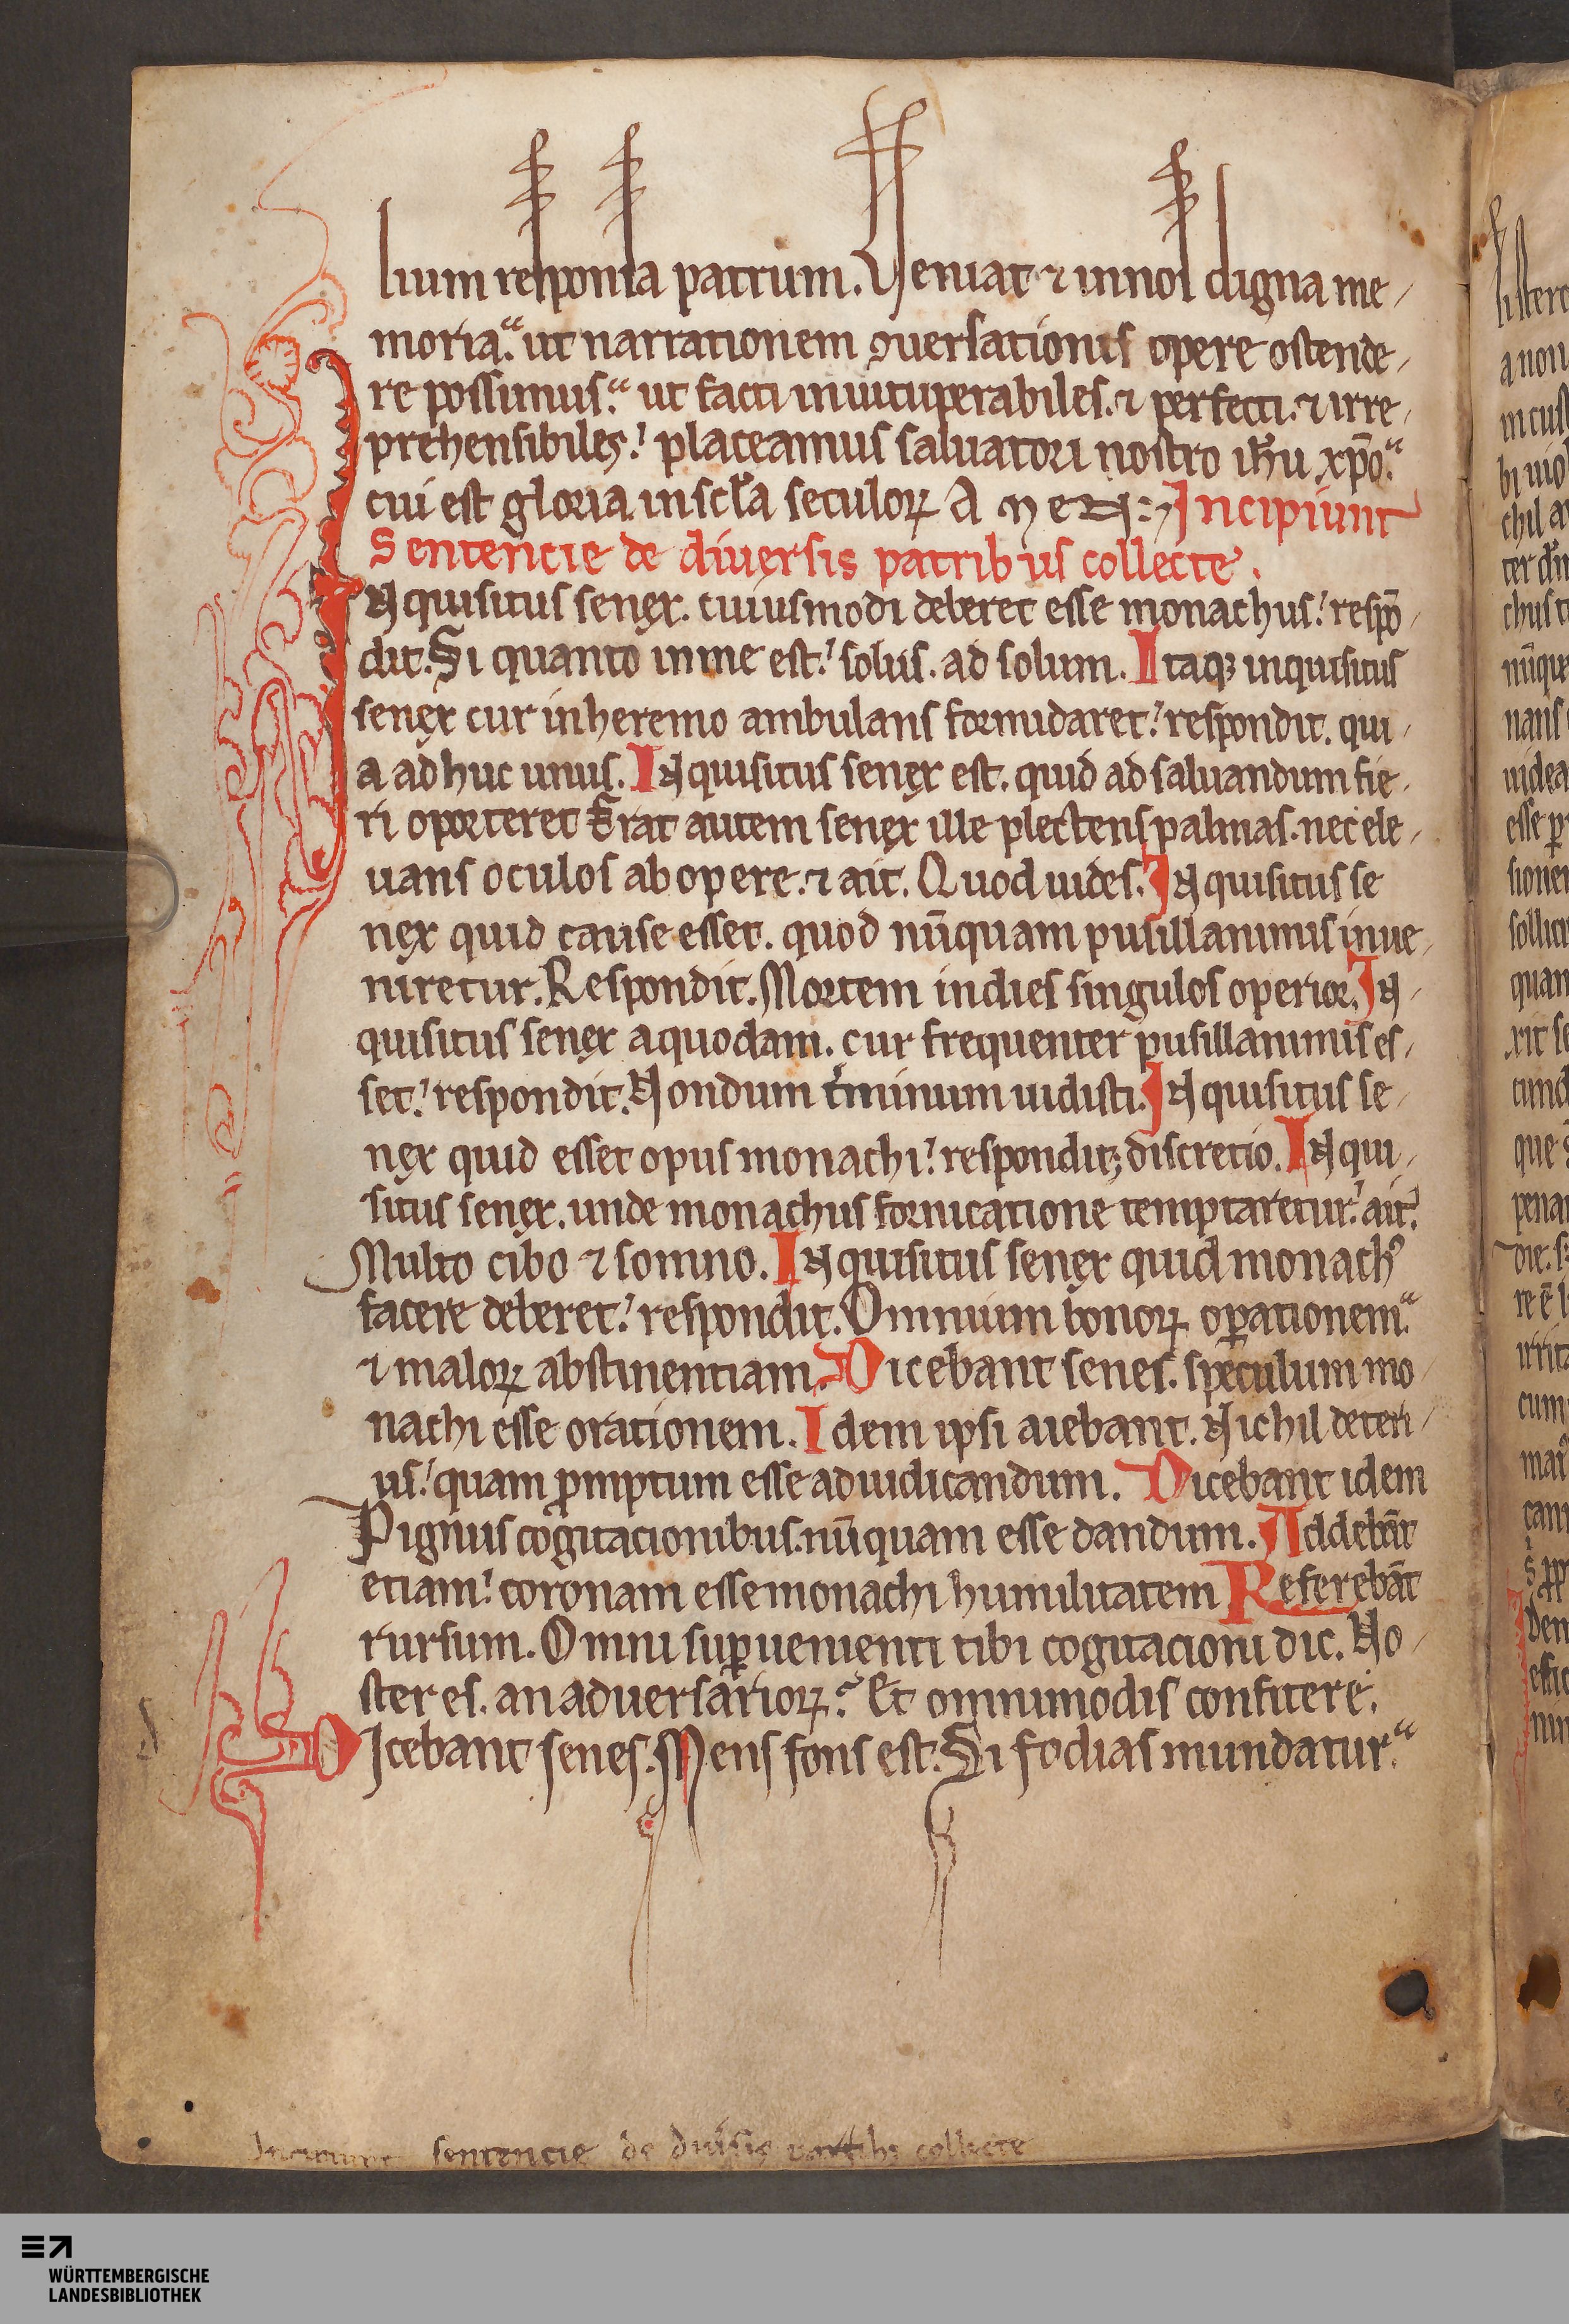 lium responsa patrum. Veniat ⁊ in nos digna me-
moria. ut narrationem ꝯuersationis opere ostende-
re possimus. ut facti inuituperabiles. ⁊ perfecti. ⁊ irre-
prehensibiles? placeamus saluatori nostro ih̄u xp̄o.
cui est gloria in scl̄a seculoꝝ AMEN: Incipiunt
Sentencie de diuersis patribus collecte.
Inquisitus senex. cuiusmodi deberet esse monachus? respō-
dit. Si quanto in me est? solus. ad solum. Itaqꝫ inquisitus
senex cur in heremo ambulans formidaret? respondit. qui-
a adhuc unus. Inquisitus senex est. quid ad saluandum fie-
ri oporteret Erat autem senex ille plectens palmas. nec ele-
uans oculos ab opere. ⁊ ait. Quod uides. Inquisitus se
nex quid cause esset. quod nūquam pusillanimis inue-
niretur. Respondit. Mortem in dies singulos operior. In-
quisitus senex a quodam. cur frequenter pusillanimis es-
set? respondit. Nondum t̾minum uidisti. Inquisitus se-
nex quid esset opus monachi? respondit; discretio. Inqui-
situs senex. unde monachus fornicatione temptaretur? ait?
Multo cibo ⁊ somno. Inquisitus senex quid monachꝰ
facere deberet? respondit. Omnium bonoꝝ oꝑationem.
⁊ maloꝝ abstinentiam. Dicebant senes. speculum mo-
nachi esse orationem. Idem ipsi aiebant. Nichil deteri-
us? quam ꝓmptum esse ad iudicandum. Dicebant idem
Pignus cogitacionibus. nūquam esse dandum. Addebāt
etiam? coronam esse monachi humilitatem Referebāt
rursum. Omni suꝑuenienti tibi cogitacioni dic. No-
ster es. an aduersarioꝝ? Et omnimodis confitere.
Dicebant senes. Mens fons est. Si fodias mundatur.
Incipiunt sentencie de diu̾sis patribꝫ collecte
WÜRTTEMBERGISCHE
LANDESBIBLIOTHEK